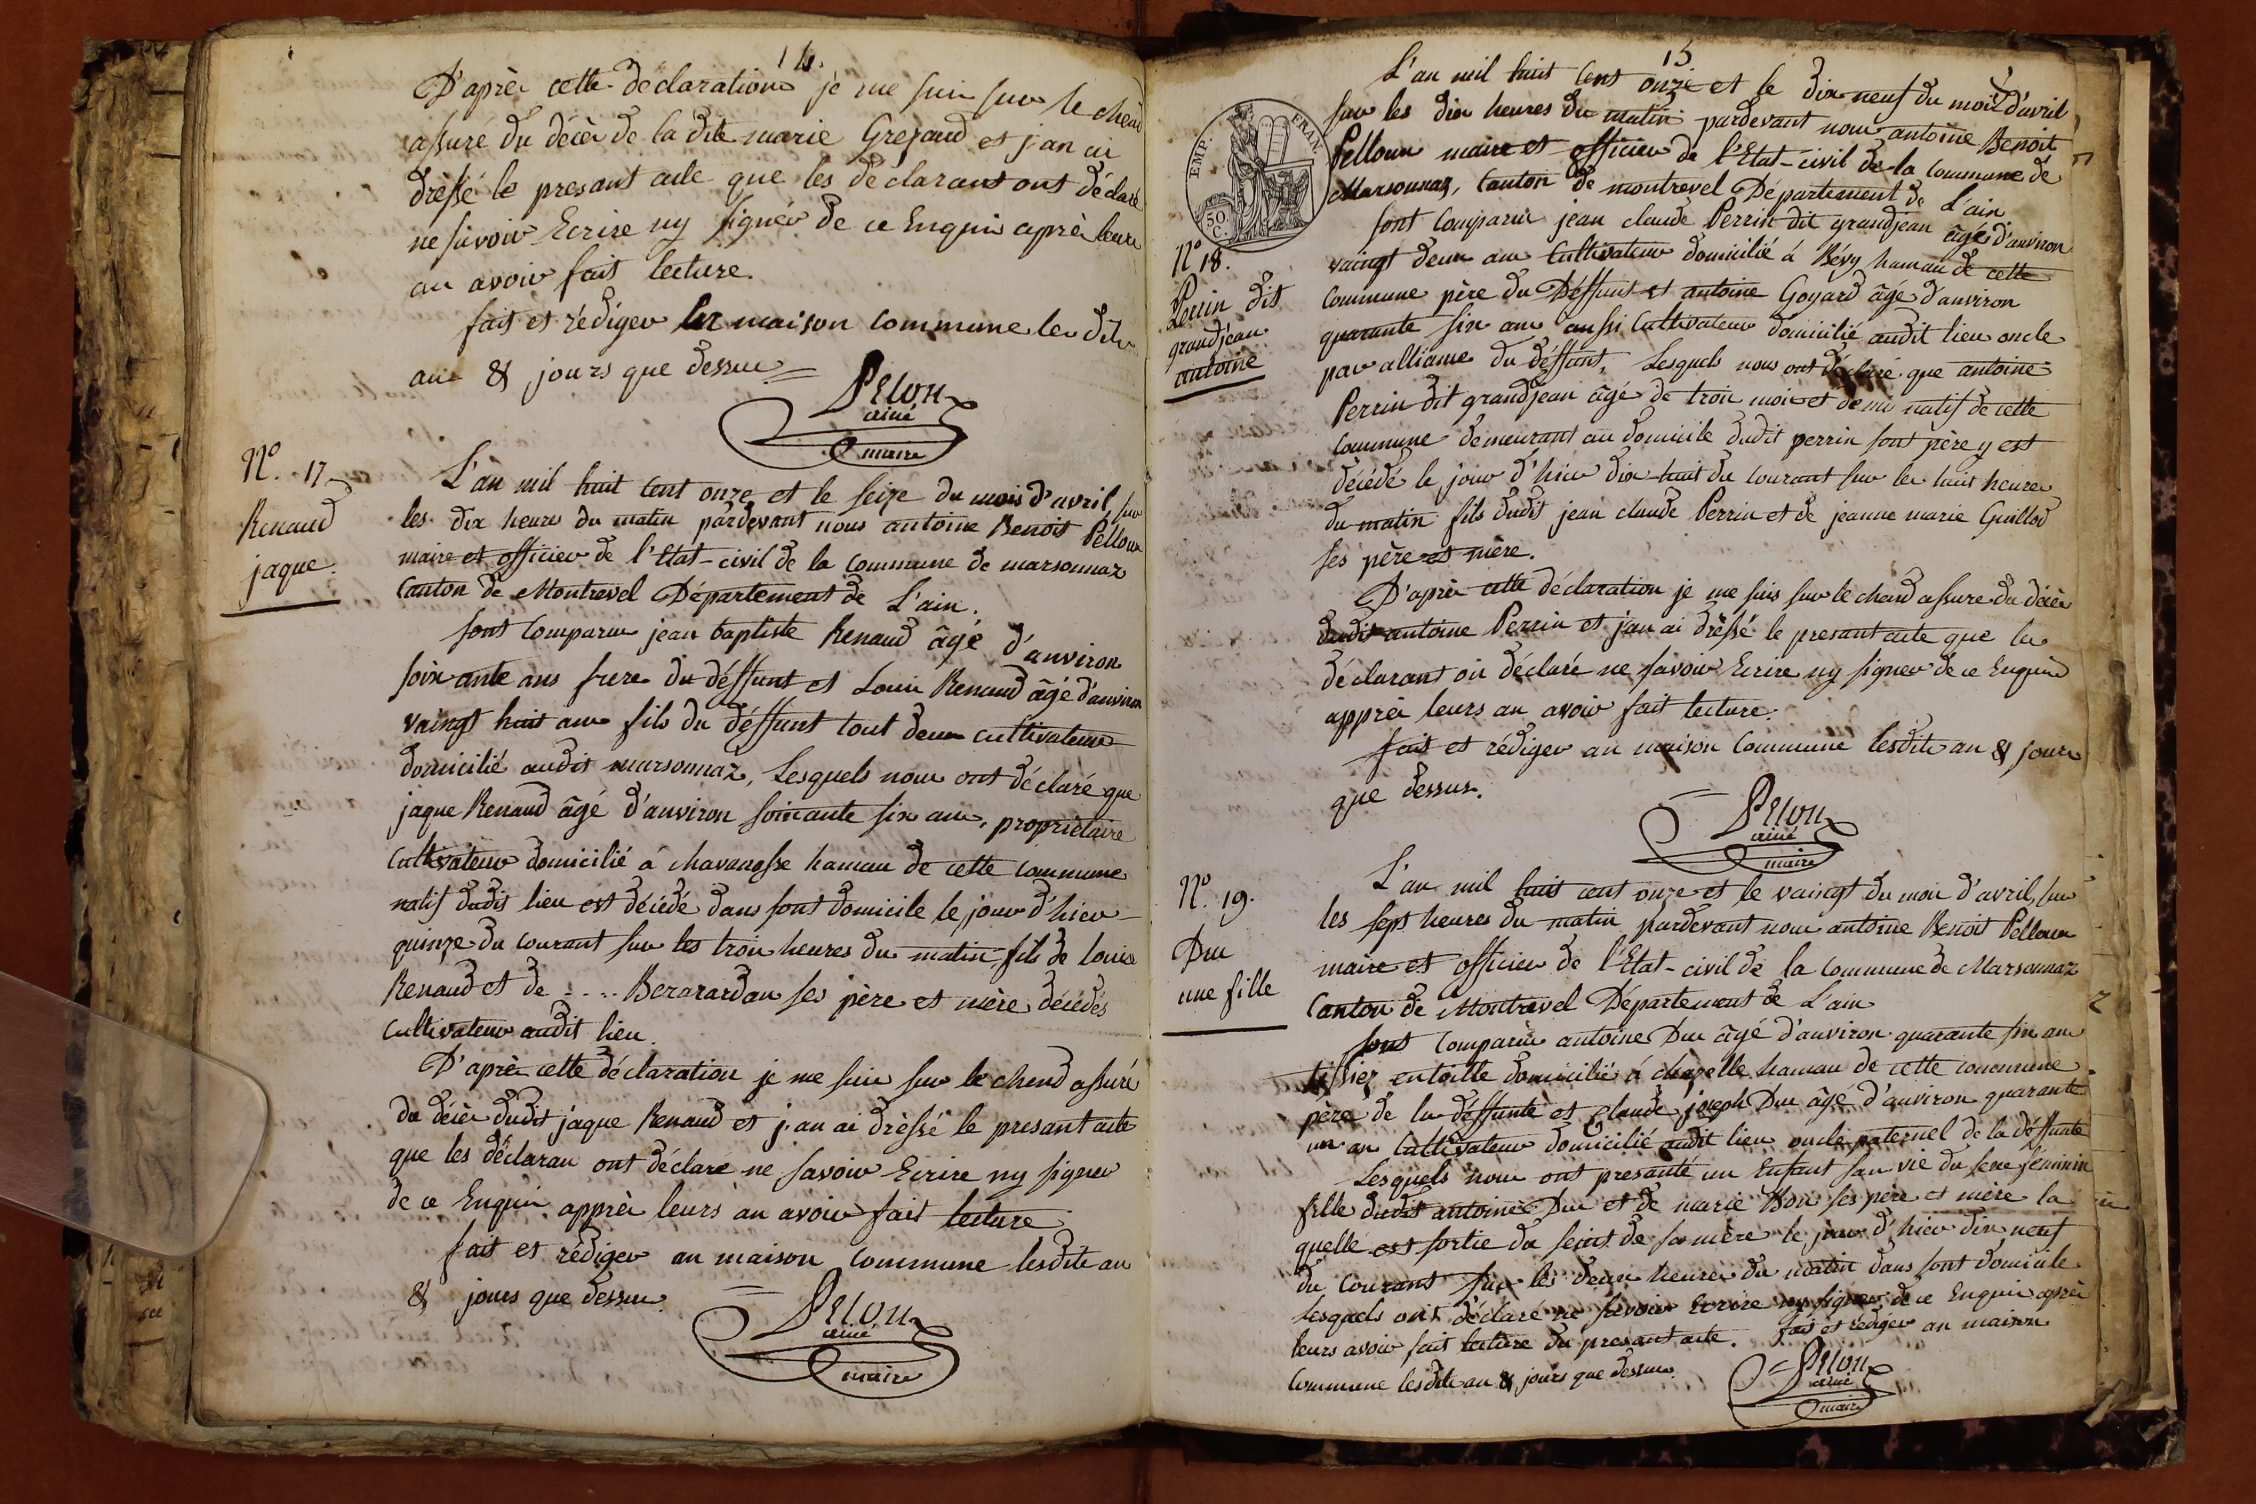 14.
D'après cette declaration je me suis sur le cheud
assuré du décès de la dite marie Grezaud et j'an ai
drèssé le presant acte que les declarant ont déclaré
ne savoir Ecrire ny signér de ce Enquis après leurs
au avoir fait lecture.
fait et rédiger en maison commune les dits
ans & jours que dessus
PElON
ainé
maire
N°. 17
Renaud
jaque.
L'an mil huit cent onze et le seize du mois d'avril, sur
les dix heures du matin pardevant nous antoine Benoit Pelloux
maire et officier de l'Etat-civil de la commune de marsonnaz
Canton de Montrevel Département de L'ain.
sont comparus jean baptiste Renaud âgé d'anviron
soixante ans frere du déffunt et Louis Renaud âgé d'anviron
vaingt huit ans fils du déffunt tout deux cultivateurs
domicilié audit marsonnaz, Lesquels nous ont déclaré que
jaque Renaud âgé d'anviron soixante six ans, propriètaire
cultivateur domicilié à chavanosse hamau de cette commune
natif dudit lieu est décédé dans sont domicile le jour d'hier
quinze du courant sur les trois heures du matin, fils de louis
Renaud et de .... Berarardan ses père et mère décédés
cultivateur audit lieu.
D'après cette déclaration je me suis sur le cheud assuré
du décès dudit jaque Renaud et j'an ai drèssé le presant acte
que les déclaran ont déclaré ne savoir Ecrire ny signer
de ce Enquis apprès leurs an avoir fait lecture
fait et rédiger an maison commune lesdits an
& jours que dessus.
PElON
ainé
maire
15
EMP. FRAN.
50
C.
L'an mil huit cent onze et le dix neuf du mois d'avril
sur les dix heures du matin pardevant nous antoine Benoit
Pelloux maire et officier de l'Etat-civil de la commune de
Marsonnaz, canton de montrevel Département de L'ain
N° 18.
Perrin dit
grandjean
antoine
sont comparus jean claude Perrin dit grandjean âgé d'anviron
vaingt deux ans cultivateur domicilié à Bévy hamau de cette
commune père du Déffunt et antoine Goyard âgé d'anviron
quarante six ans aussi cultivateur domicilié audit lieu oncle
par alliance du déffunt, Lesquels nous ont déclaré que antoine
Perrin dit grandjean âgé de trois mois et demi natif de cette
commune demeurant au domicile dudit perrin sont père y est
décédé le jour d'hier dix huit du courant sur les huit heures
du matin fils dudit jean claude Perrin et de jeanne marie Guillod
ses père et mère.
D'après cette déclaration je me suis sur le cheud assure du décès
dudit antoine Perrin et j'an ai drèssé le presant acte que les
déclarant on déclaré ne savoir Ecrire ny signer de ce Enquis
apprès leurs an avoir fait lecture.
fait et rédiger an maison commune lesdits an & jours
que dessus.
PElON
ainé
maire
N° 19.
Duc
une fille
L'an mil huit cent onze et le vaingt du mois d'avril, sur
les sept heures du matin pardevant nous antoine Benoit Pelloux
maire et officier de l'Etat-civil de la commune de Marsonnaz
Canton de Montrevel Département de L'ain
sont comparus antoine Duc âgé d'anviron quarante six ans
tissier entoille domicilié à chapelle hamau de cette commune
père de la déffunte et Claude joseph Duc âgé d'anviron quarante
un an cultivateur domicilié audit lieu oncle paternel de la déffunte
Lesquels nous ont presanté un Enfant san vie du sexe féminin
fille dudit antoine Duc et de marie Bon ses père et mère la
quelle est sortie du seint de sa mère le jour d'hier dix neuf
du courant sur les deux heures du matin dans sont domicile
lesquels ont déclaré ne savoir Ecrire ny signer de ce Enquis après
leurs avoir fait lecture du presant acte. fait et rédiger an maison
commune lesdits an & jours que dessus.
PElON
ainé
maire